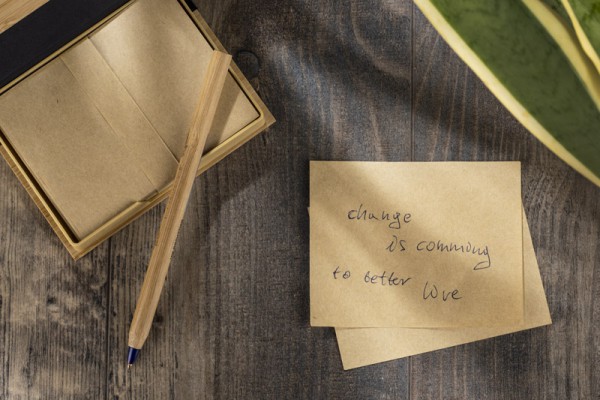 change
is comming
to better love